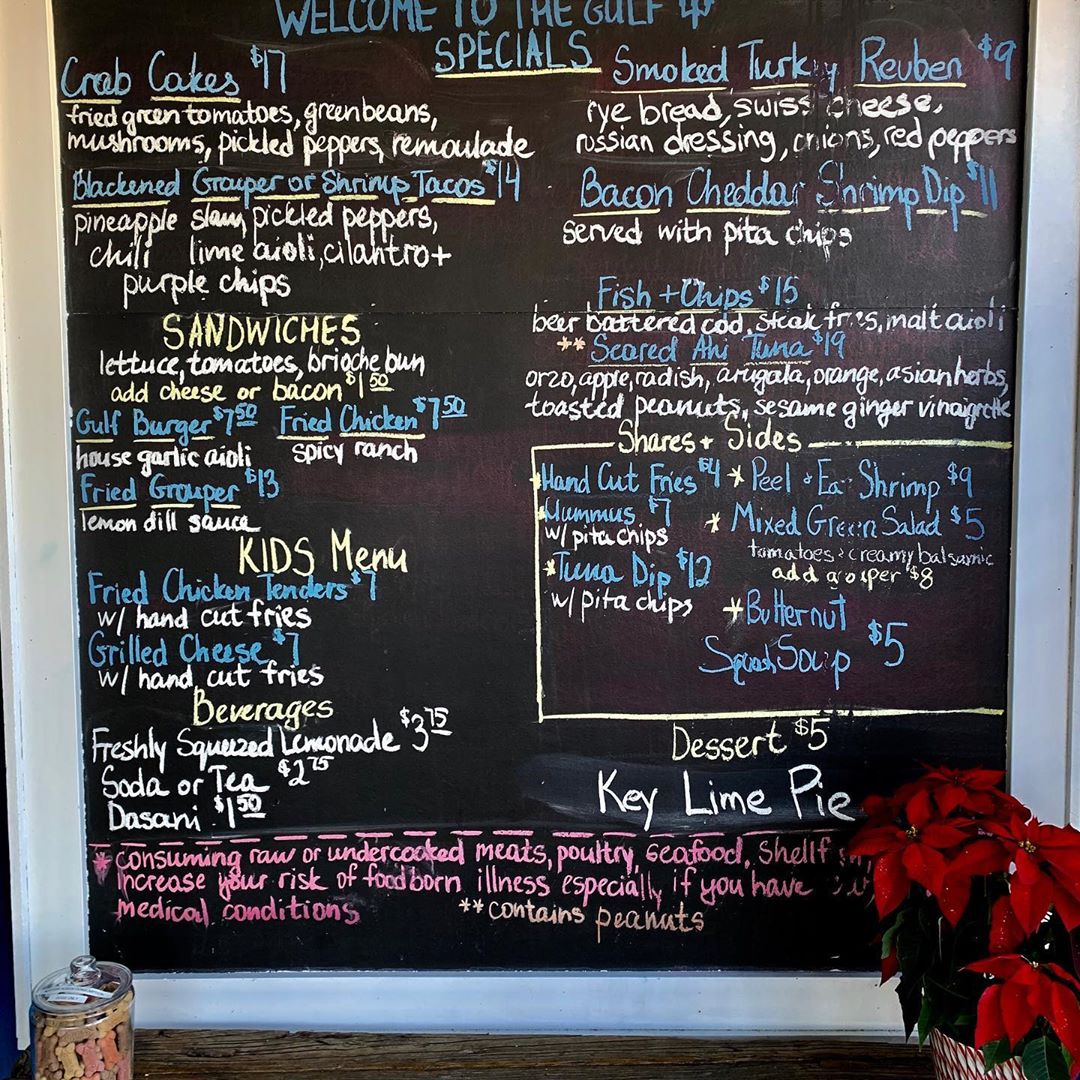 WELCOME TO THE GULF
SPECIALS
Crab Cakes $17
fried green tomatoes, green beans,
mushrooms, pickled peppers, remoulade
Blackened Grouper or Shrimp Tacos $14
pineapple slaw, pickled peppers,
chili lime aioli, cilantro +
purple chips
SANDWICHES
lettuce, tomatoes, brioche bun
add cheese or bacon $1.50
Gulf Burger $7.50 Fried Chicken $7.50
house garlic aioli spicy ranch
Fried Grouper $13
lemon dill sauce
KIDS Menu
Fried Chicken Tenders $7
w/ hand cut fries
Grilled Cheese $7
w/ hand cut fries
Beverages
Freshly Squeezed Lemonade $3.75
Soda or Tea $2.75
Dasani $1.50
Smoked Turkey Reuben $9
rye bread, swiss cheese,
russian dressing, onions, red peppers
Bacon Cheddar Shrimp Dip $11
served with pita chips
Fish + Chips $15
beer battered cod, steak fries, malt aioli
** Seared Ahi Tuna $19
orzo, apple, radish, arugala, orange, asian herbs,
toasted peanuts, sesame ginger vinaigrette
Shares + Sides
* Hand Cut Fries $4
* Hummus $7
w/ pita chips
* Tuna Dip $12
w/ pita chips
* Peel & Eat Shrimp $9
* Mixed Green Salad $5
tomatoes & creamy balsamic
add grouper $8
* Butternut
Squash Soup $5
Dessert $5
Key Lime Pie
* consuming raw or undercooked meats, poultry, seafood,
increase your risk of foodborn illness especially if you have
medical conditions
** contains peanuts